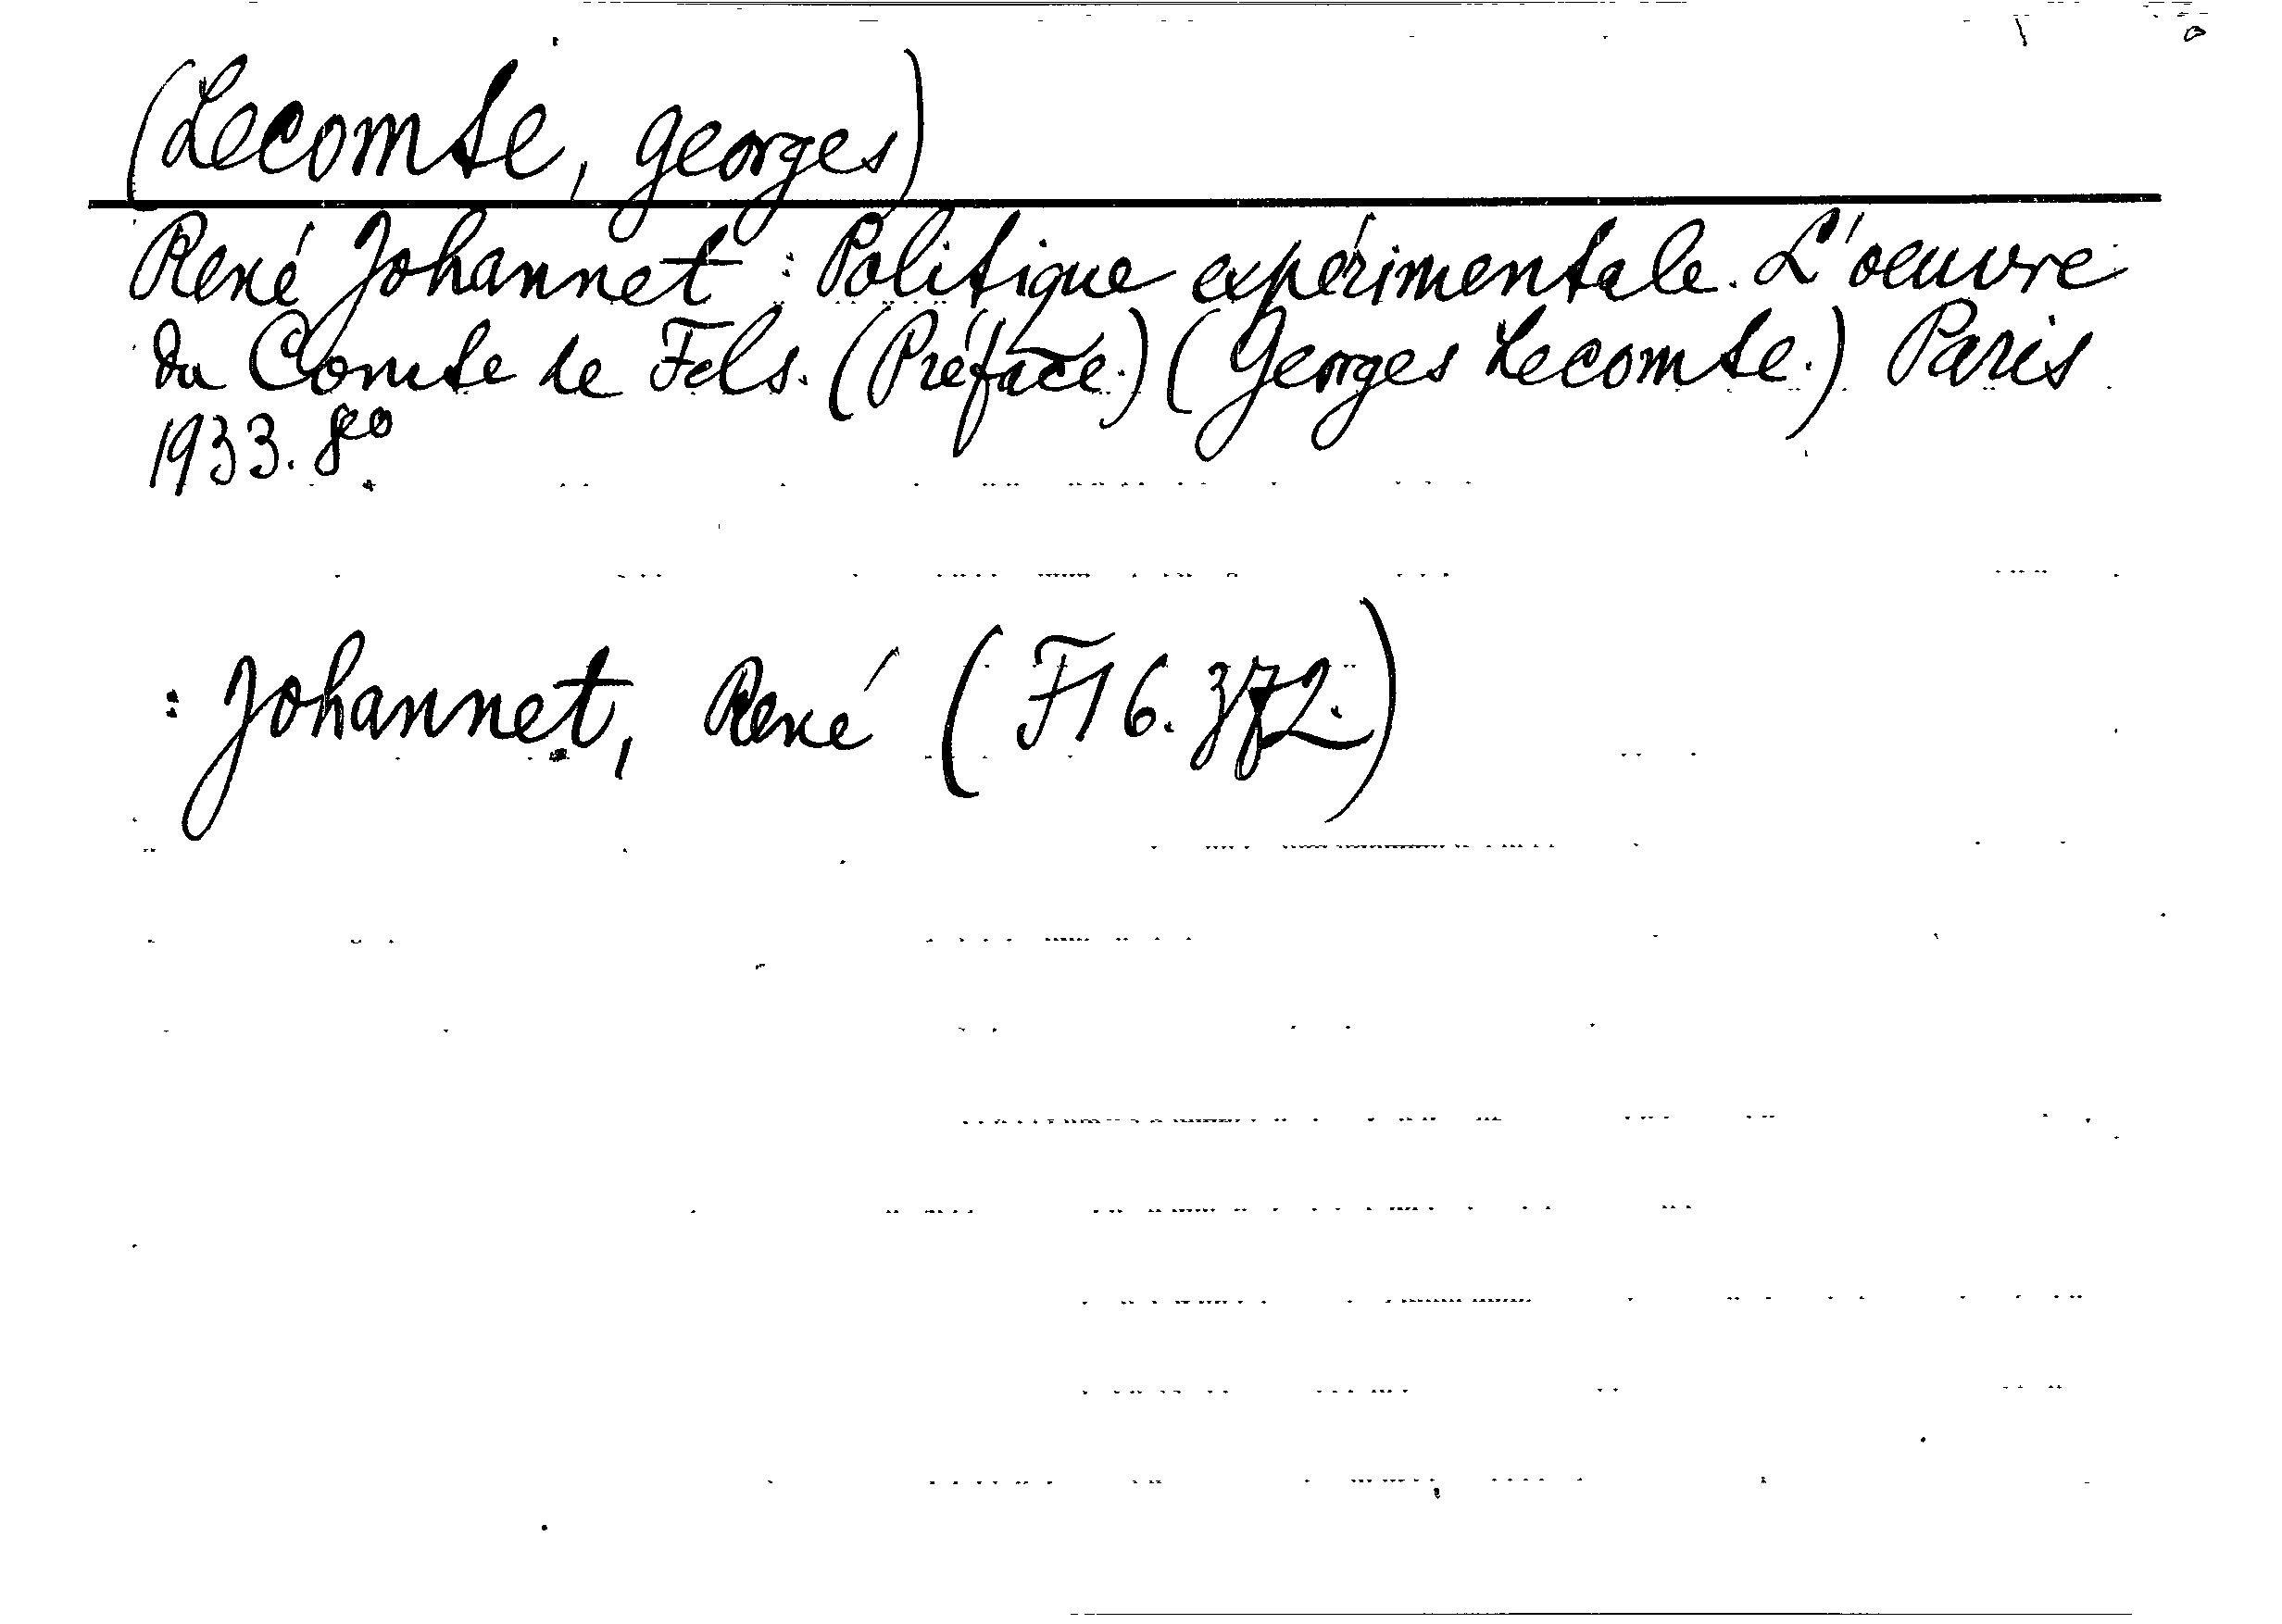 (Lecomte, Georges)
René Johannet : Politique expérimentale. L'oeuvre
du Comte de Fels. (Préface.) (Georges Lecomte.) Paris
1933. 8°
: Johannet, René (F16. 372.)